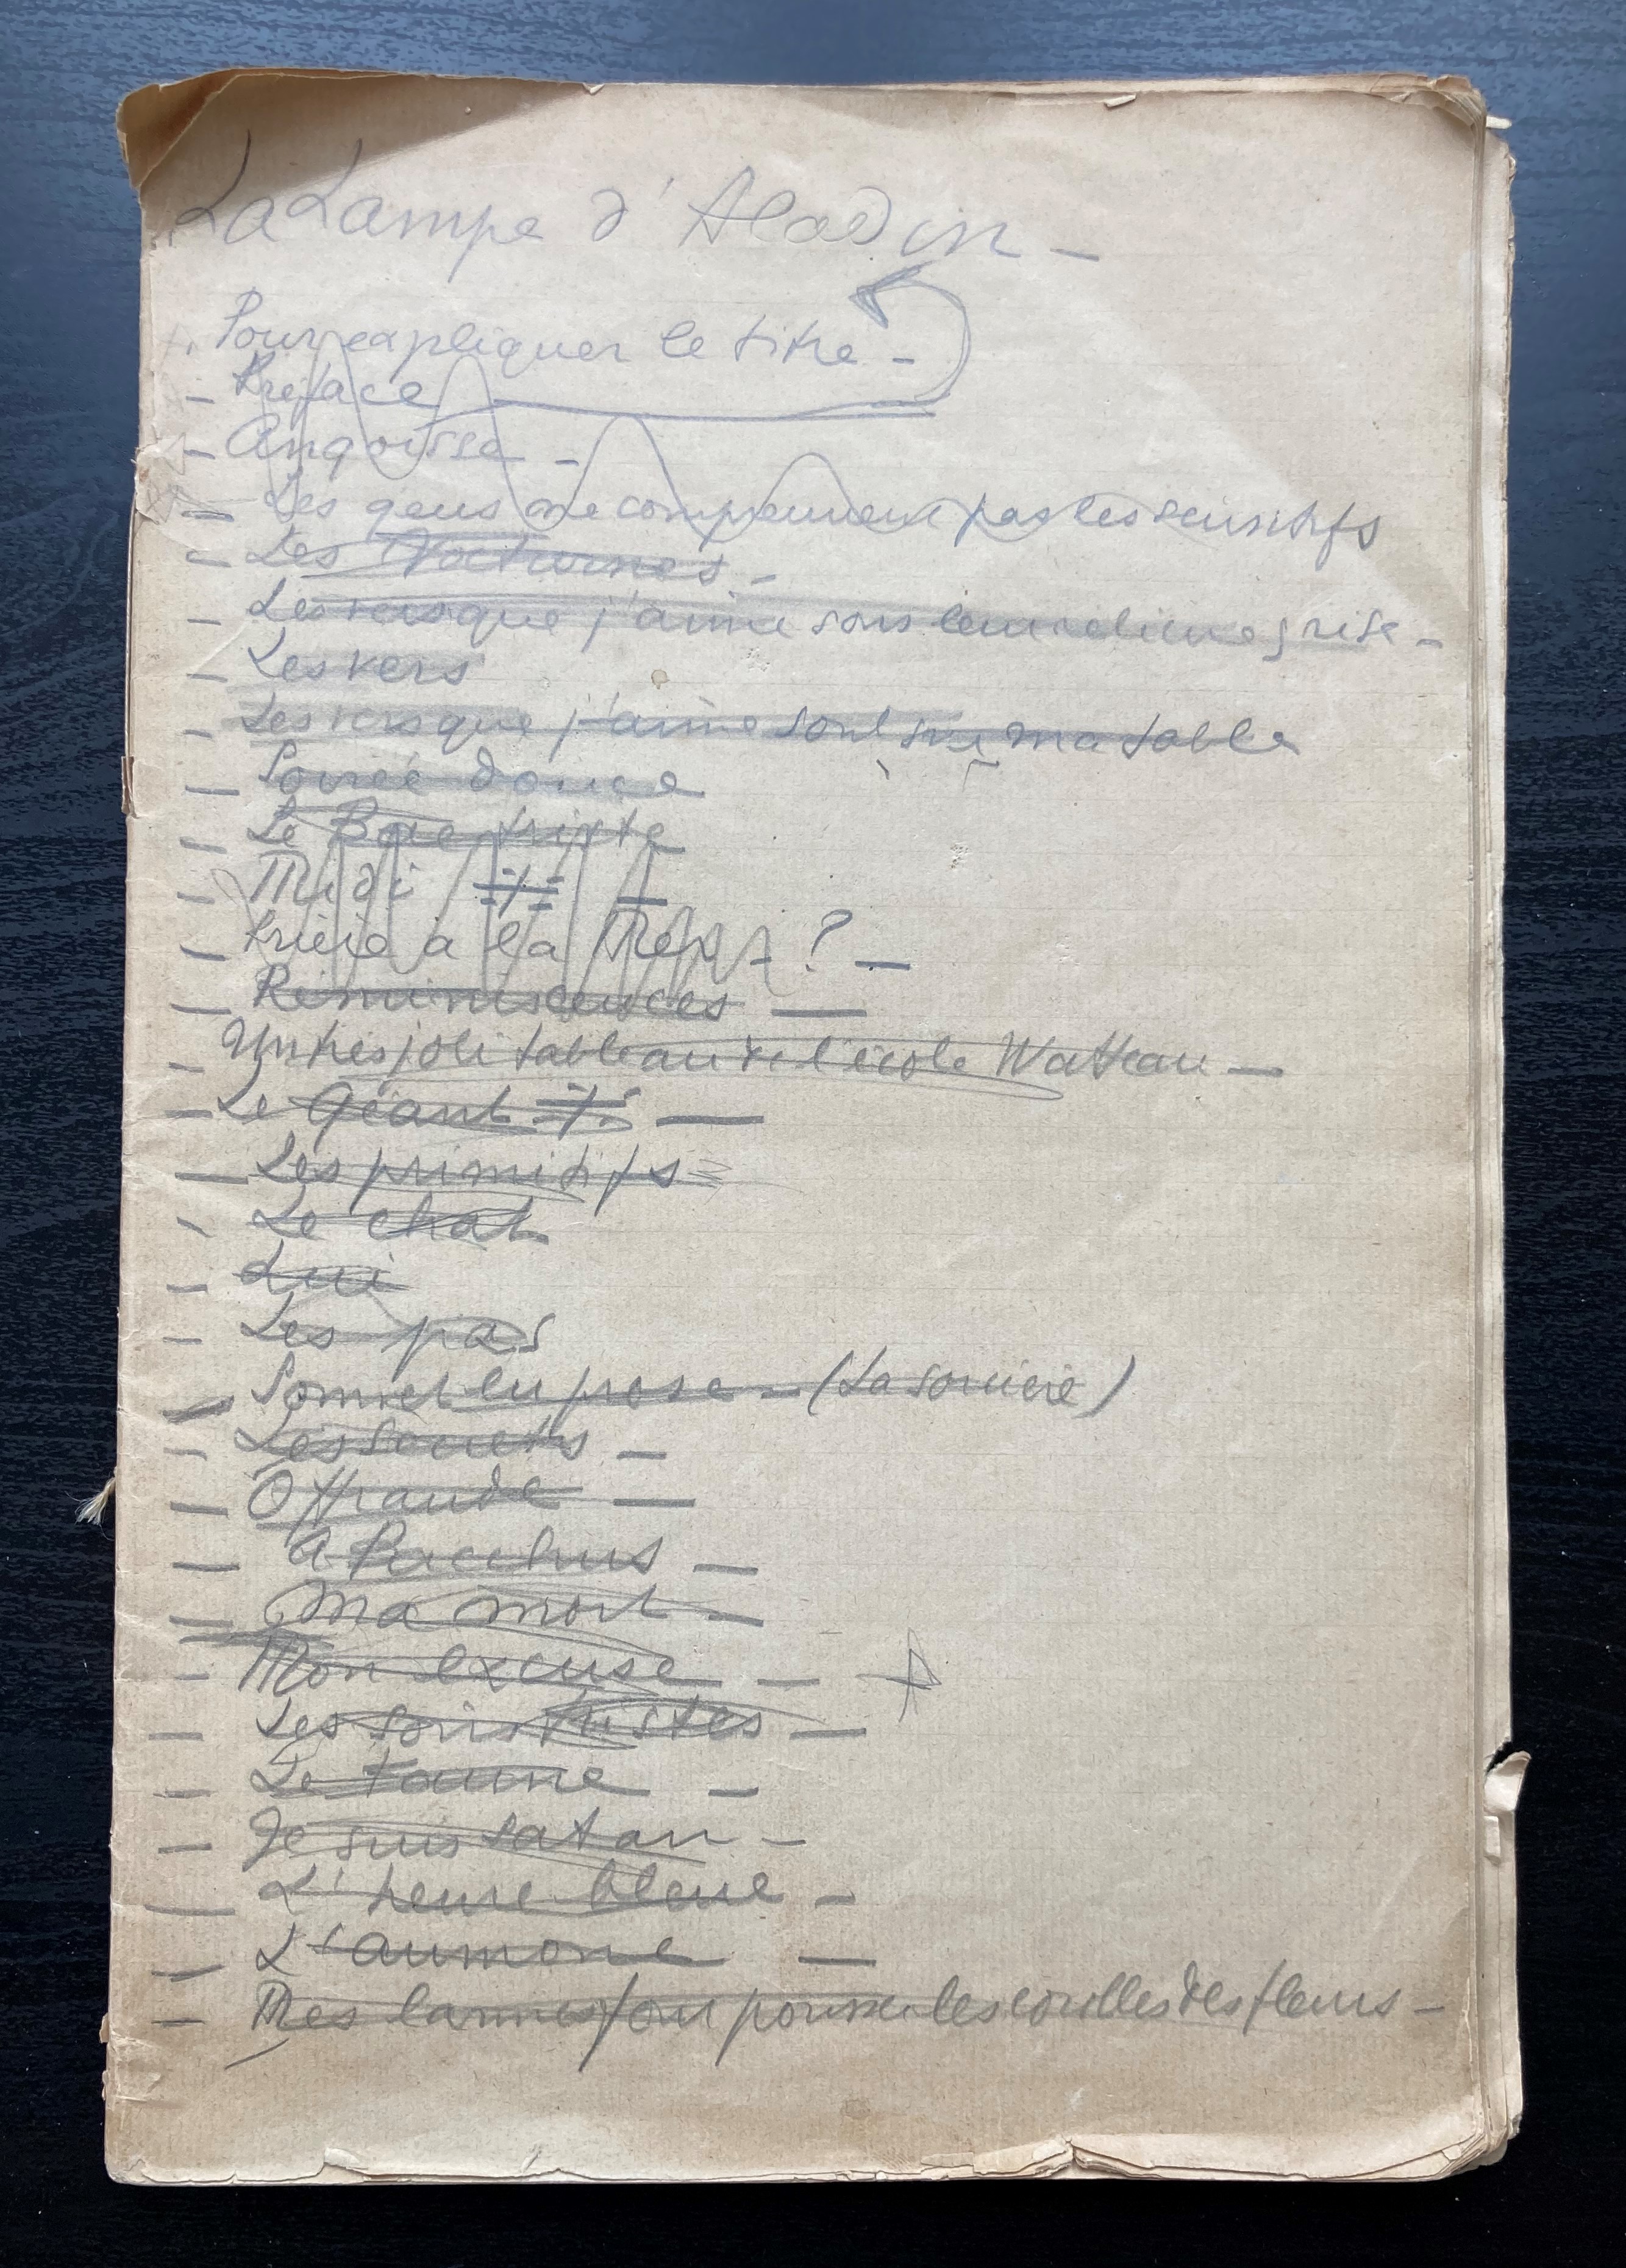 La Lampe d'Aladin -
Pour expliquer le titre -
- Preface
- Angoisse -
- Les gens ne comprennent pas les sensitifs
- Les Nocturnes -
- Les vers que j'aime sous leur reliure grise -
- Les vers
- Les vers que j'aime sont sur ma table
- Soirée douce
- Le triste
- Midi -
- Prière à la ? -
- Réminiscences -
- Un très joli tableau de l'école Watteau -
- Le Géant -
- Les primitifs
- Le chat
- Lui
- Les pas
- Sonnet en prose - (La sorcière)
- Les secrets -
- Offrande -
- A Bacchus -
- Ma mort -
- Mon excuse -
- Les soirs tristes -
- Le faune -
- Je suis Satan -
- L'heure bleue -
- L'aumone -
- Mes larmes font pousser les corolles des fleurs -